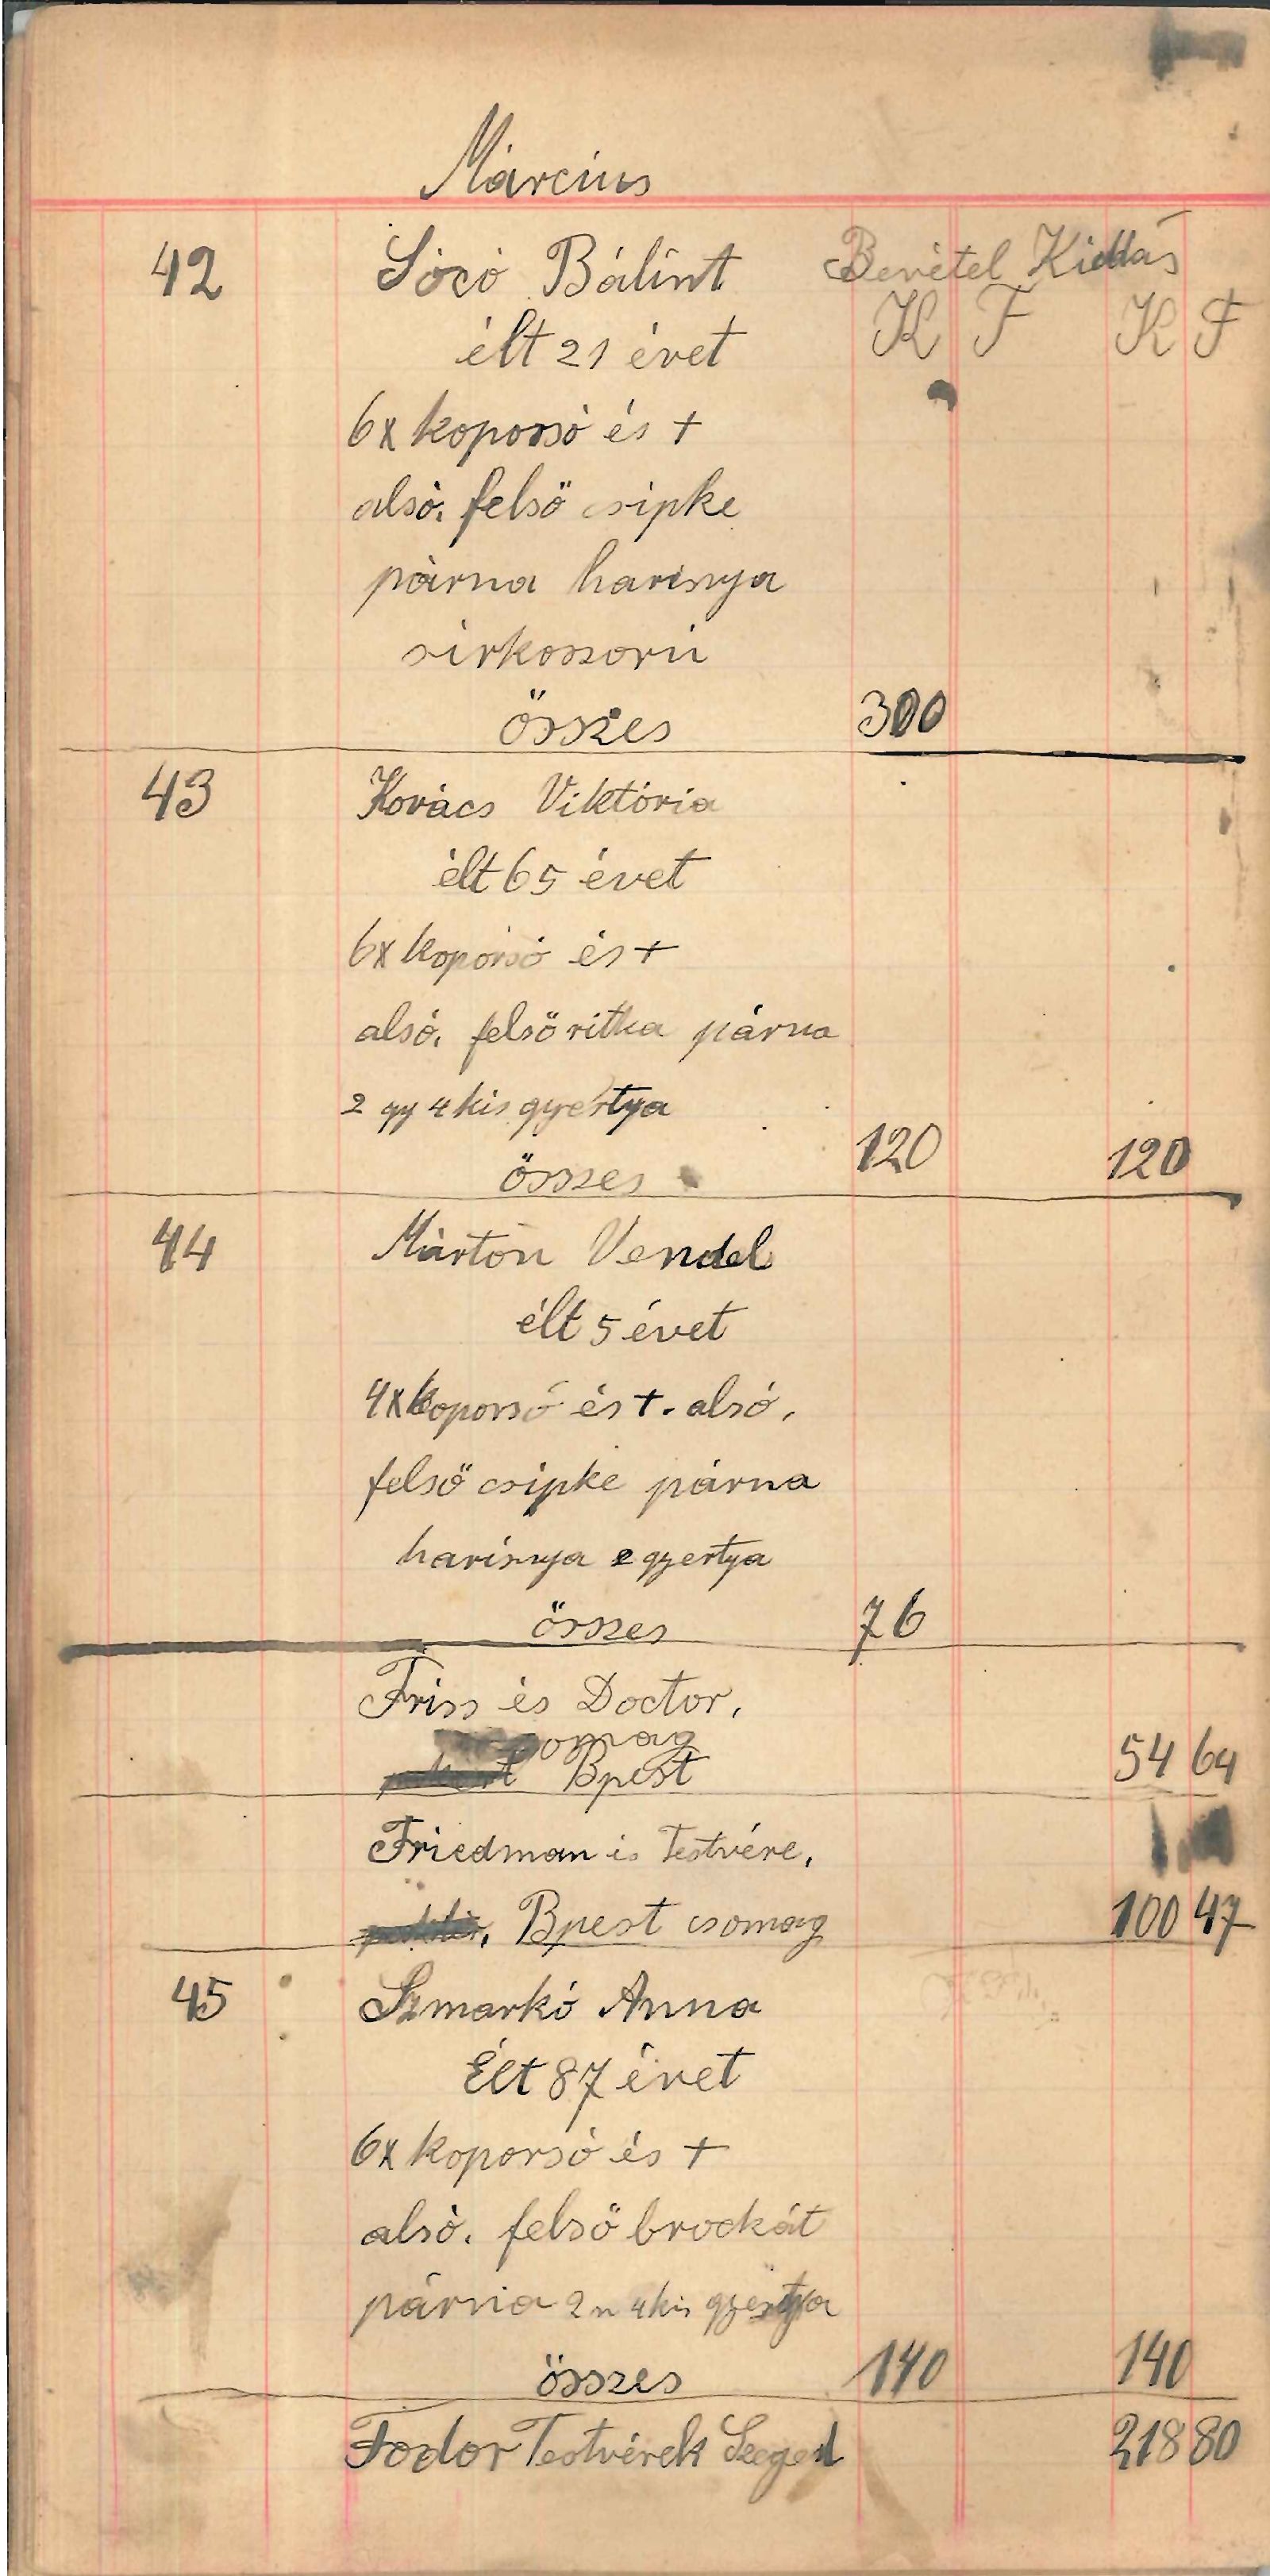 Március
42 Sócó Bálint Bevétel Kiadás
élt 21 évet K F K F
6x koporsó és +
alsó, felső csipke
párna harisnya
sirkoszorú
összes 300
43 Kovács Viktória
élt 65 évet
6x koporsó és +
alsó, felső ritka párna
2 gy 4 kis gyertya
összes 120 120
44 Márton Vendel
élt 5 évet
4x koporsó és +. alsó,
felső csipke párna
harisnya 2 gyertya
összes 76
Friss és Doctor,
Bpest 54 64
Friedman és Testvére,
Bpest csomag 100 47
45 Szmarkó Anna
Élt 87 évet
6x koporsó és +
alsó. felső brockát
párna 2 n 4 kis gyertya
összes 140 140
Fodor Testvérek Szeged 218 80